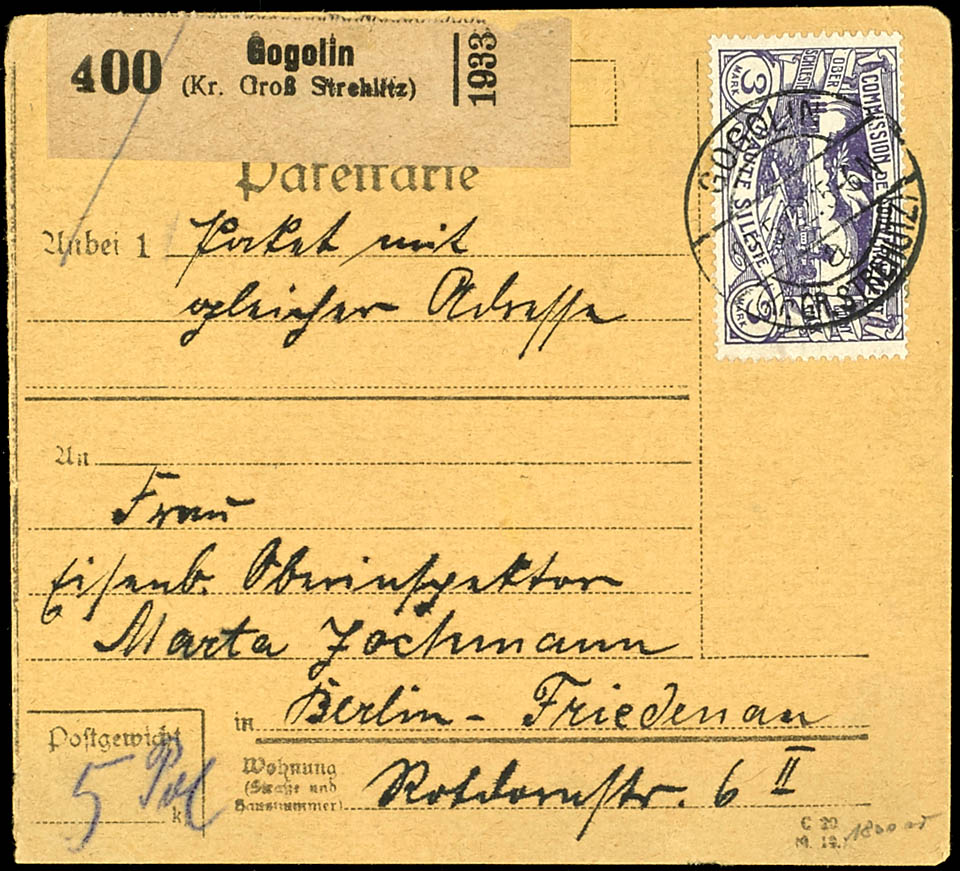 400 Gogolin 1933
(Kr. Groß Strehlitz)
Paketkarte
Anbei 1 Paket mit
gleicher Adresse
An
Frau
Eisenb. Oberinspektor
Marta Jochmann
in Berlin-Friedenau
Wohnung
(Straße und
Hausnummer)
Rotdornstr. 6 II
Postgewicht
5
k
C 20
M. 19.
3 MARK
OBER
SCHLESIEN
COMMISSION DE
HAUTE SILESIE
3 MARK
GOGOLIN